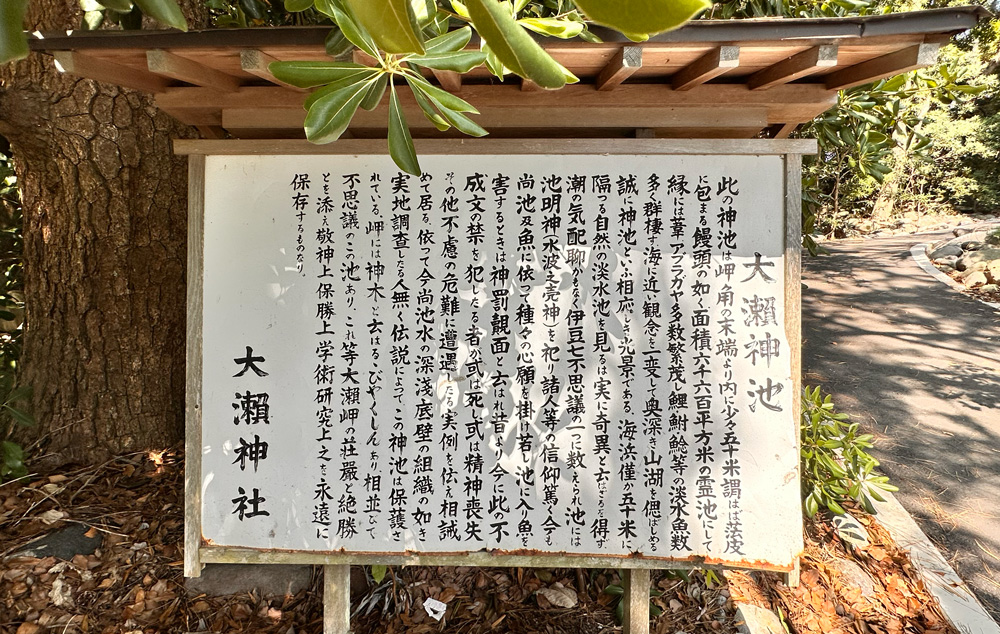 大瀬神池
此の神池は岬角の末端より内に少々五十米謂はば法皮
に包まる饅頭の如く面積六千六百平方米の霊池にして
縁には葦アブラガヤ多数繁茂し鯉鮒鯰等の淡水魚数
多く群棲す海に近い観念を一変して奥深き山湖を偲ばしめる
誠に神池といふ相応しき光景である、海浜僅か五十米に
隔つる自然の淡水池を見るは実に奇異と云はざるを得ず、
潮の気配聊かもなく伊豆七不思議の一つに数えられ池には
池明神水波之売神)を祀り諸人等の信仰篤く今でも
尚池及魚に依って種々の心願を掛け若し池に入り魚を
害するときは神罰覿面と云はれ昔より今に此の不
成文の禁を犯したる者が或は死し或は精神喪失
その他不慮の危難に遭遇したる実例を伝え相誡
めて居る、依って今尚池水の深淺底壁の組織の如き
実地調査したる人無く伝説によってこの神池は保護さ
れている、岬には神木と云はるゝびやくしんあり相並びて
不思議のこの池あり、これ等大瀬岬の荘厳と絶勝
とを添え敬神上保勝上学術研究上之を永遠に
保存するものなり、
大瀬神社